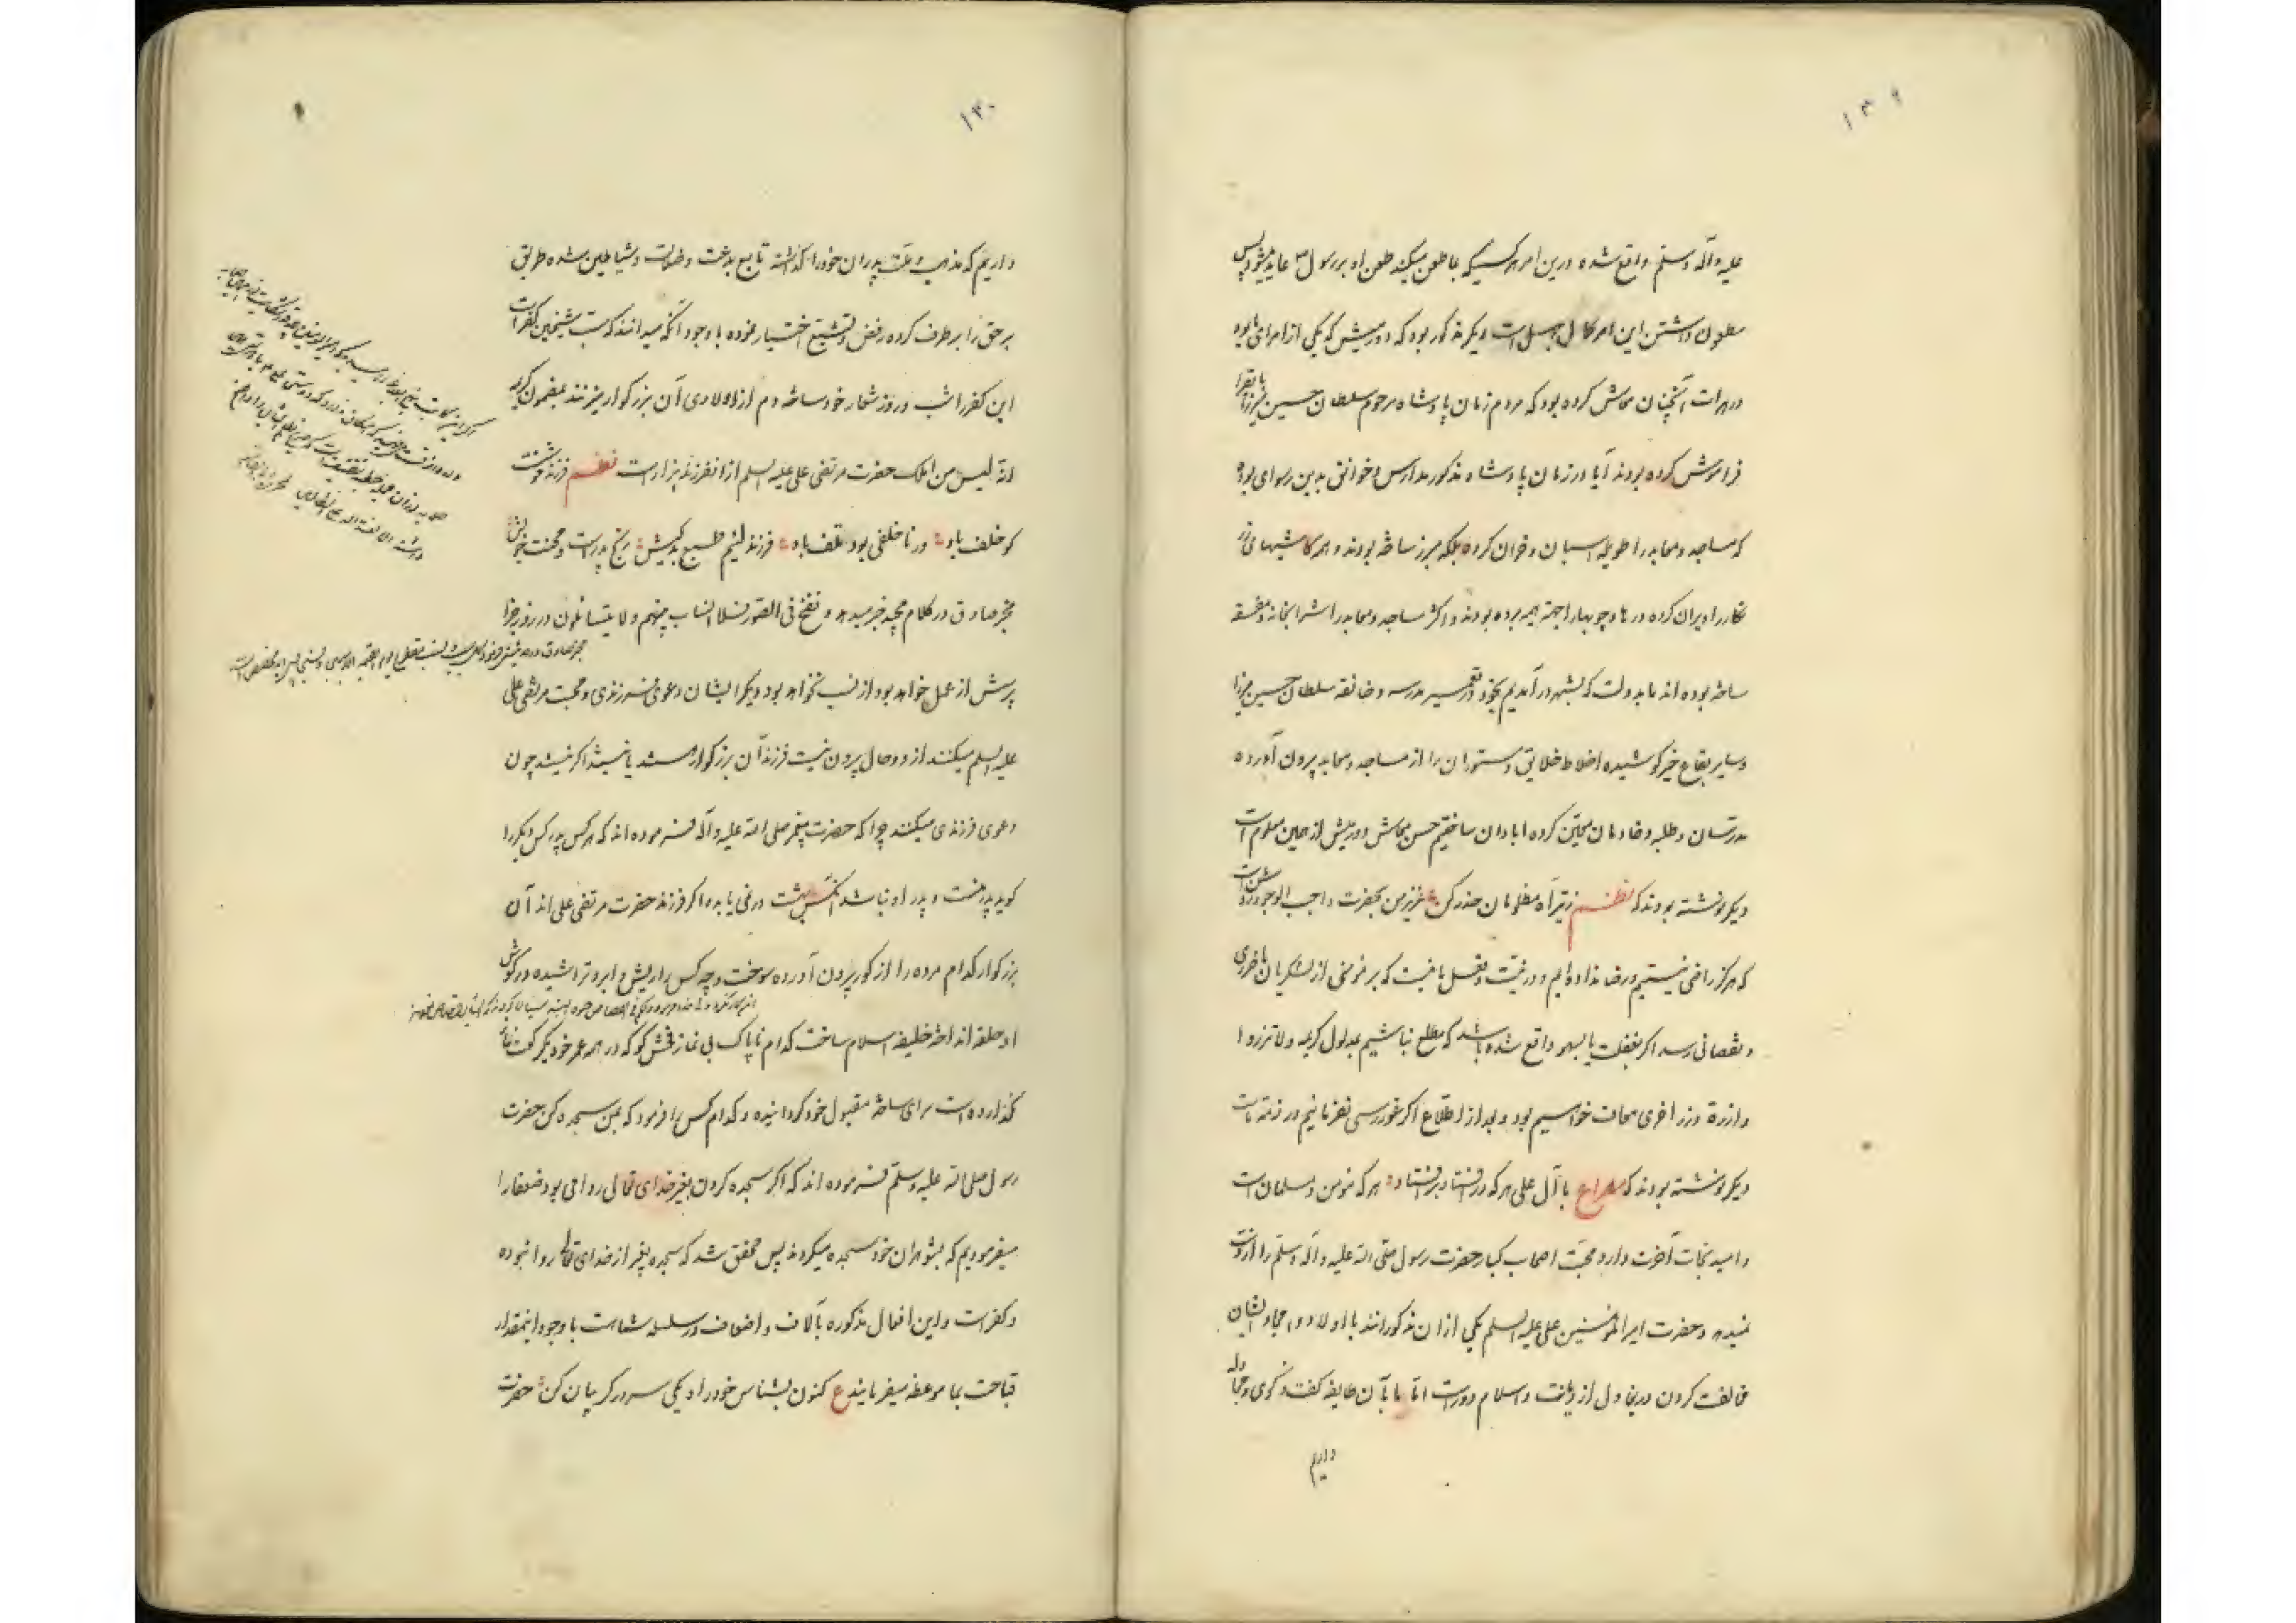 ۱۳۹
علیه وآله وسلم واقع شده درین امر هر کسیکه بما طعن میکند طعن او بر رسول عاید میشود پس
مطعون داشتن این امر کمال جهل است دیگر مذکور بود که درمیش که یکی از امرای ما بود
در هرات آنچنان معاش کرده بود که مردم زمان پادشاه مرحوم سلطان حسین میرزا بایقرا
فراموش کرده بودند آیا در زمان پادشاه مذکور مدارس و خوانق بدین رسوای بود
که مساجد و معابد را طویله اسبان و خران کرده بلکه مبرز ساخته بودند و همه کاشیهای زر
نکار را ویران کرده درها و چوبها را جهة هیمه برده بودند و اکثر مساجد و معابد را شرابخانه و مفسقه
ساخته بوده اند ما بدولت که بشهر درآمدیم بخود در تعمیر مدرسه و خانقه سلطان حسین میرزا
وسایر بقاع خیر کوشیده اخلاط خلایق و ستوران را از مساجد و معابد بیرون آورده
مدرسان و طلبه و خادمان معین کرده ابادان ساختیم حسن معاش درمیش از همین معلوم است
دیگر نوشته بودند که نظم زتیر آه مظلومان حذر کن عزیز من بحضرت واجب الوجود روشن است
که هرگز راضی نیستیم و رضا نداده ایم و در نیت و فعل ما نیست که بر مؤمنی از لشکریان ما ضرری
و نقصانی رسد اکر بغفلت یا بسهو واقع شده باشد که مطلع نباشیم بمدلول کریمه ولا تزروا
وازرة وزر اخری معاف خواهیم بود و بعد از اطلاع اکر غور رسی نفرمائیم در ذمه ماست
دیگر نوشته بودند که مصراع با آل علی هر که در افتاد بر افتاد هر که مؤمن و مسلمان است
و امید نجات آخرت دارد محبت اصحاب کبار حضرت رسول صلی الله علیه وآله وسلم را از دست
نمیدهد و حضرت امیر المؤمنین علی علیه السلم یکی از ان مذکورانند با اولاد و امجاد ایشان
مخالفت کردن از دیانت و اسلام دور است اما ما بآن طایفه گفت و کوی و مجادله
داریم
۱۴۰
داریم که مذهب و ملت پدران خود را گذاشته تابع بدعت و ضلالت و شیاطین شده طریق
بر حق را بر طرف کرده رفض و تشیع اختیار نموده با وجود آنکه میدانند که سب شیخین کفر است
این کفر را شب و روز شعار خود ساخته دم از اولادی آن بزرگوار میزنند بمضمون کریمه
انه لیس من اهلک حضرت مرتضی علی علیه السلم از انفرزند بیزار است نظم فرزند فرشته
کو خلف باد ور ناخلفی بود تلف باد فرزند لئیم طبع بدکیش رنج پدر است و محنت خویش
مخبر صادق در کلام مجید خبر میدهد و نفخ فی الصور فلا انساب بینهم ولا یتسائلون در روز جزا
پرسش از عمل خواهد بود از نسب نخواهد بود دیگر ایشان دعوی فرزندی و محبت مرتضی علی
علیه السلم میکنند از دو حال بیرون نیست فرزند آن بزرگوار هستند یا نیستند اکر نیستند چون
دعوی فرزندی میکنند چرا که حضرت پیغمبر صلی الله علیه وآله فرموده اند که هر کس پدر کس دیگر را
گوید پدر منست و پدر او نباشد آنکس بهشت در نمی یابد و اکر فرزند حضرت مرتضی علی اند آن
بزرگوار کدام مرده را از کور بیرون آورده سوخت و چه کس را ریش و ابرو تراشیده در گوش
او حلقه انداخته خلیفه اسلام ساخت کدام ناپاک بی نماز فحش کو که در همه عمر خود یکرکعت نماز
نگذارده است برای ساخته مقبول خود گردانیده و کدام کس را فرمود که بمن سجده کن حضرت
رسول صلی الله علیه وسلم فرموده اند که اکر سجده کردن بغیر خدای تعالی روا می بود ضعفا را
میفرمودیم که بشوهران خود سجده میکردند پس محقق شد که سجده بغیر از خدای تعالی روا نبوده
و کفر است و این افعال مذکوره بآلاف و اضعاف در سلسله شماست با وجود اینمقدار
قباحت بما موعظه میفرمایند ع کنون بشناس خود را و یکی سر در کریبان کن حضرت